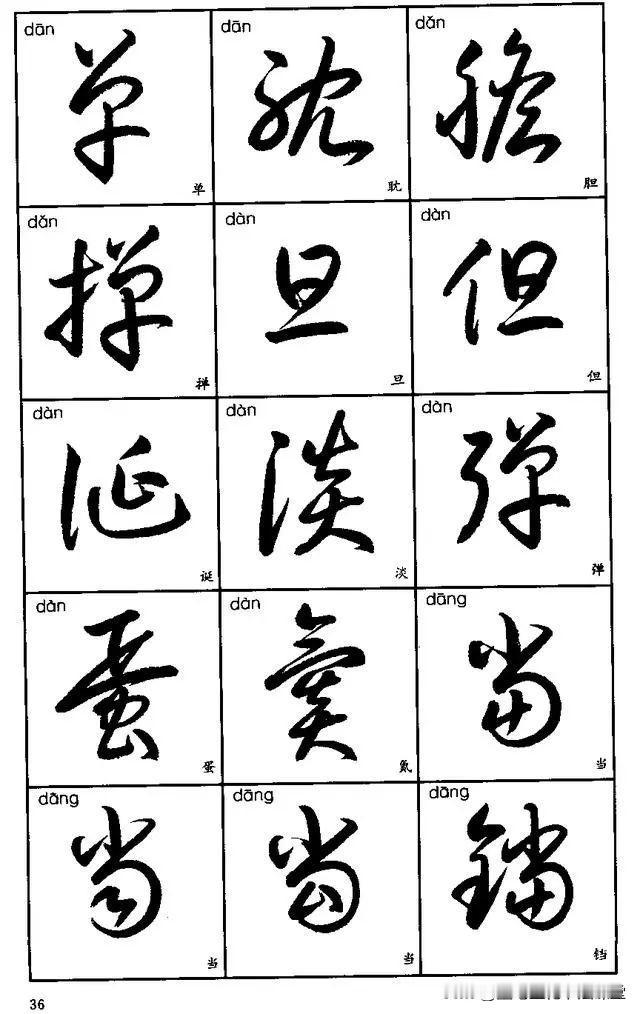 dān dān dǎn
单 耽 胆
单 耽 胆
dǎn dàn dàn
掸 旦 但
掸 旦 但
dàn dàn dàn
诞 淡 弹
诞 淡 弹
dàn dàn dāng
蛋 氮 当
蛋 氮 当
dāng dāng dāng
当 当 铛
当 当 铛
36